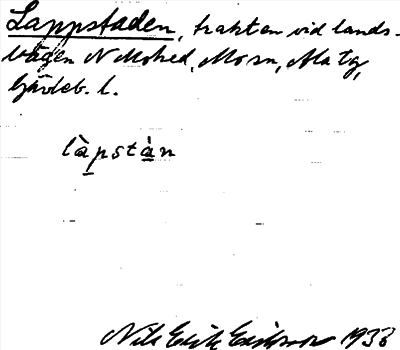 Lappstaden, trakten vid lands-
vägen N Mohed, Mo sn, Ala tg,
Gävleb. l.
làpstàn
Nils Erik Eriksson 1933